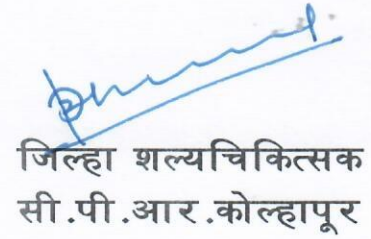 जिल्हा शल्यचिकित्सक
सी.पी.आर.कोल्हापूर